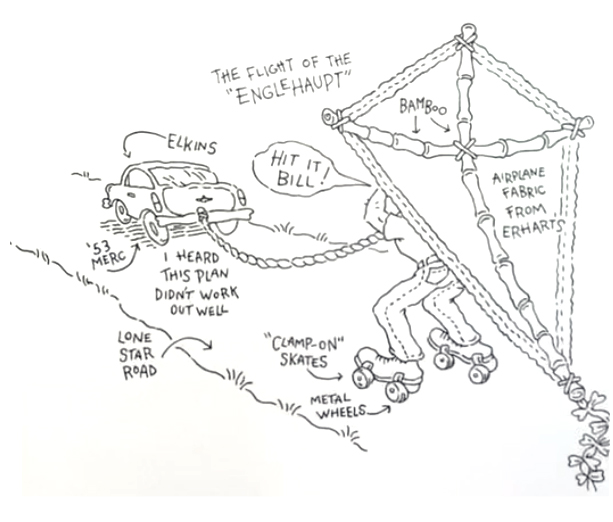 THE FLIGHT OF THE
"ENGLEHAUPT"
BAMBOO
ELKINS
HIT IT
BILL!
AIRPLANE
FABRIC
FROM
ERHART'S
'53
MERC
I HEARD
THIS PLAN
DIDN'T WORK
OUT WELL
LONE
STAR
ROAD
"CLAMP-ON"
SKATES
METAL
WHEELS